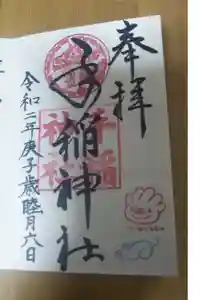 奉拝
子稲神社
令和二年庚子歳睦月六日